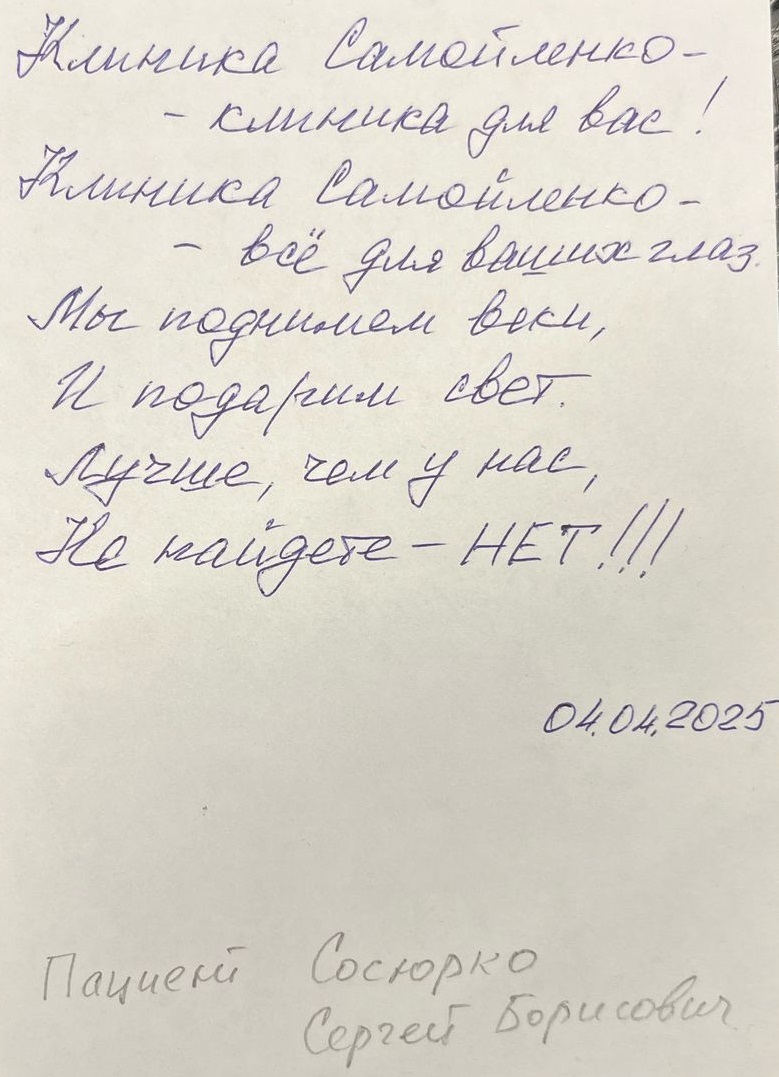 Клиника Самойленко -
- клиника для вас!
Клиника Самойленко -
- всё для ваших глаз.
Мы поднимем веки,
И подарим свет.
Лучше, чем у нас,
Не найдете - НЕТ!!!
04.04.2025
Пациент Сосюрко
Сергей Борисович